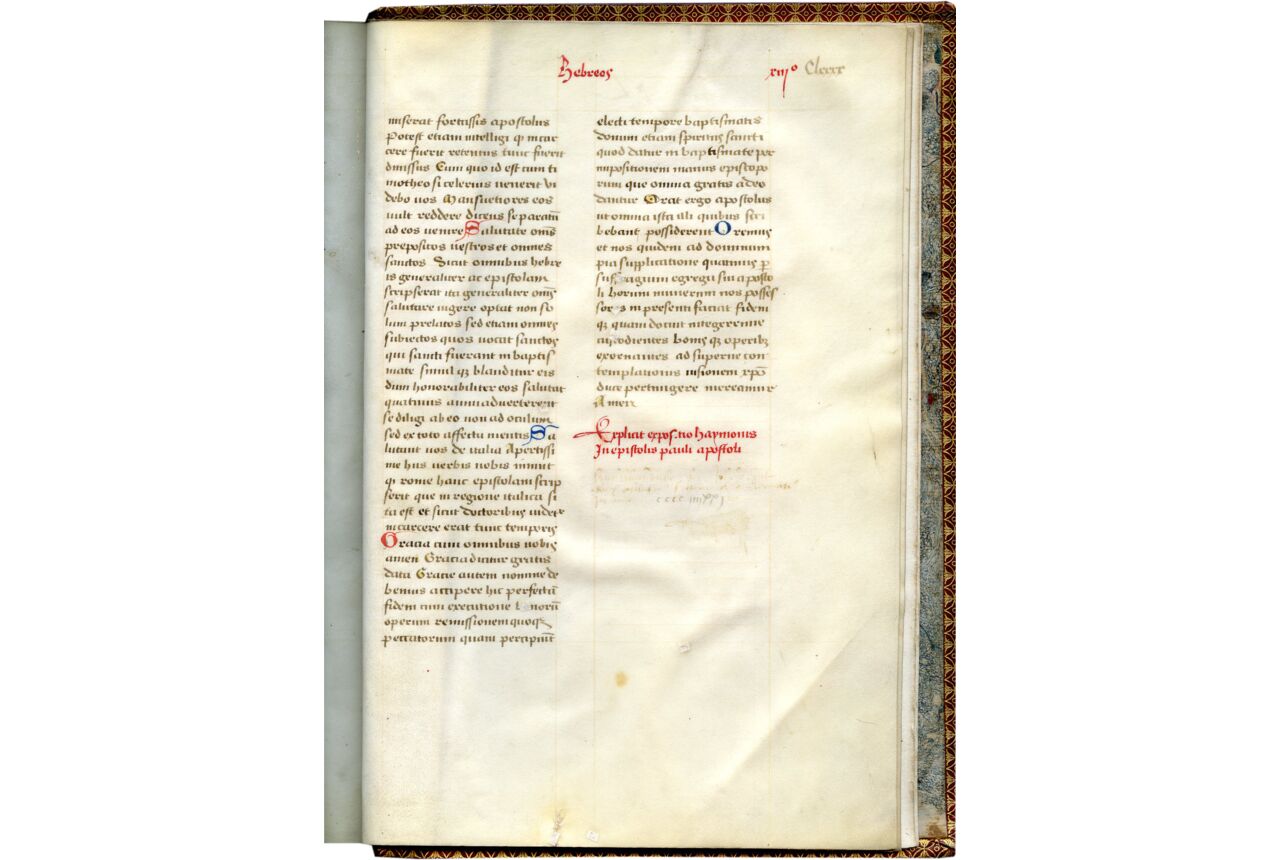 Hebreos
xiijº Clxxx
miserat fortassis apostolus
Potest etiam intelligi qi in car
cere fuerit retentus tunc fuerit
dimissus Cum quo id est cum ti
motheo si celerius venerit vi
debo uos Mansuetiores eos
uult reddere dicens se paratū
ad eos venire Salutate oms̄
prepositos vestros et omnes
sanctos Sicut omnibus hebre
is generaliter ac epistolam
scripserat ita generaliter oms̄
salutare iugere optat non so
lum prelatos sed etiam omnes
subiectos quos vocat sanctos
qui sancti fuerant in baptis
mate simul qȝ blanditur eis
dum honorabiliter eos salutat
quatinus animaduerterent
se diligi ab eo non ad oculum
sed ex toto affectu mentis Sa
lutant vos de italia Apertissi
me his verbis nobis innuit
qi rome hanc epistolam scrip
serit que in regione italica si
ta est et sicut doctoribus videtr
in carcere erat tunc temporis
Gracia cum omnibus nobis
amen Gracia dicitur gratis
data Gracie autem nomine de
bemus accipere hic perfectā
fidem cum executione b norū
operum remissionem quoqȝ
peccatorum quam percipiūt
electi tempore baptismatis
donum etiam spiritus sancti
quod datur in baptismate per
impositionem manus episcopo
rum que omnia gratis a deo
dantur Orat ergo apostolus
ut omnia ista illi quibus scri
bebant possiderent Oremus
et nos quidem ad dominum
pia supplicatione quatinus ꝑ
suffragium egregii sui aposto
li horum munerum nos posses
sores in presenti faciat fidem
qȝ quam docuit integerrime
custodientes bonis qȝ operibȝ
exornantes ad superne con
templationis uisionem xpō
duce pertingere mereamur
Amen
Explicit expositio haymonis
In epistolis pauli apostoli